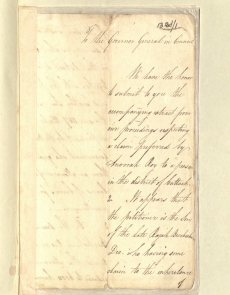 To the Governor General in Council
We have the honor
to submit to you the
accompanying extract from
our proceedings respecting
a claim preferred by
Roy to a
in the district of Cuttack.
2. It appears that
the petitioner is the Son
of the late Rajah
Deo, who having some
claim to the inheritance
of